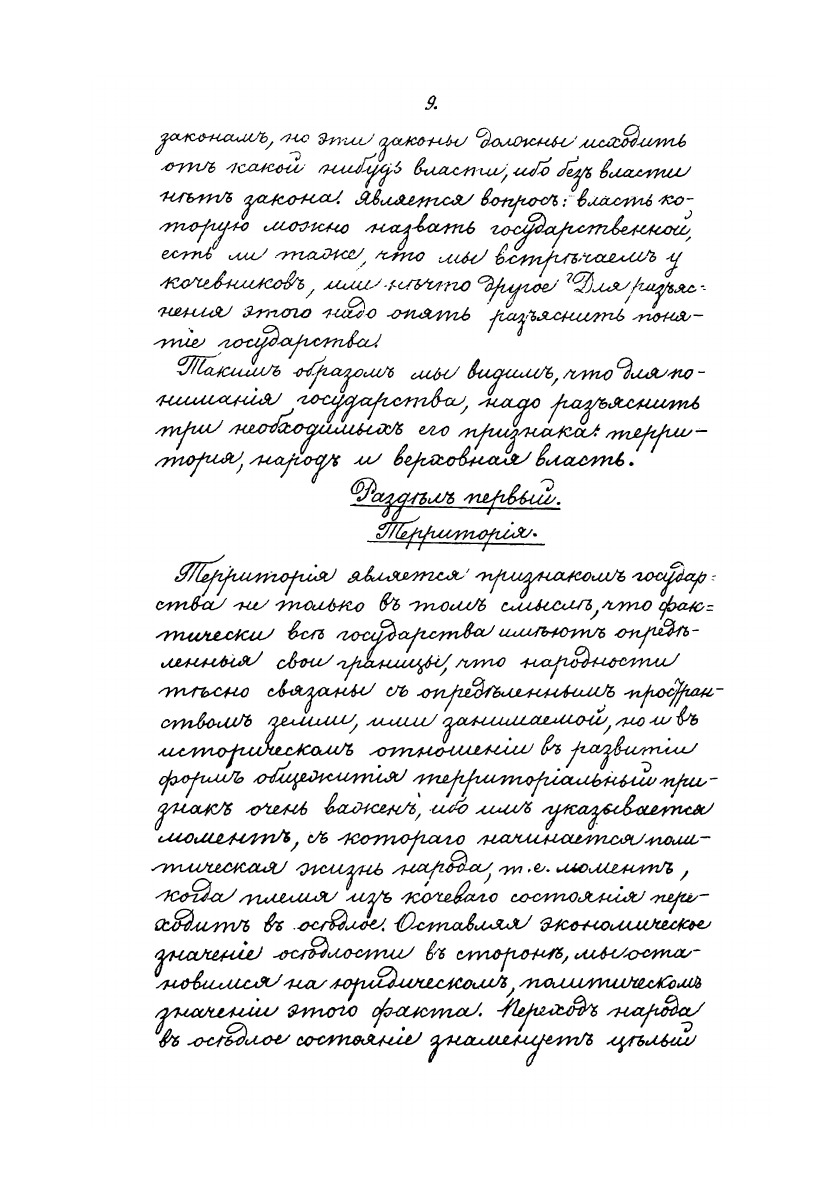 9.
законамъ, но эти законы должны исходить
отъ какой нибудь власти, ибо безъ власти
нѣтъ закона. Является вопросъ: власть ко-
торую можно назвать государственной,
есть ли таже, что мы встрѣчаемъ у
кочевниковъ, или нѣчто другое? Для разъяс-
ненія этого надо опять разъяснить поня-
тіе государства.
Такимъ образомъ мы видимъ, что для по-
ниманія государства, надо разъяснить
три необходимыхъ его признака: терри-
торія, народъ и верховная власть.
Раздѣлъ первый.
Территорія.
Территорія является признакомъ государ-
ства не только въ томъ смыслѣ, что фак-
тически всѣ государства имѣютъ опредѣ-
ленныя свои границы, что народности
тѣсно связаны съ опредѣленнымъ простран-
ствомъ земли, ими занимаемой, но и въ
историческомъ отношеніи въ развитіи
формъ общежитія территоріальный при-
знакъ очень важенъ, ибо имъ указывается
моментъ, съ котораго начинается поли-
тическая жизнь народа, т.е. моментъ,
когда племя изъ кочеваго состоянія пере-
ходитъ въ осѣдлое. Оставляя экономическое
значеніе осѣдлости въ сторонѣ, мы оста-
новимся на юридическомъ, политическомъ
значеніи этого факта. Переходъ народа
въ осѣдлое состояніе знаменуетъ цѣлый